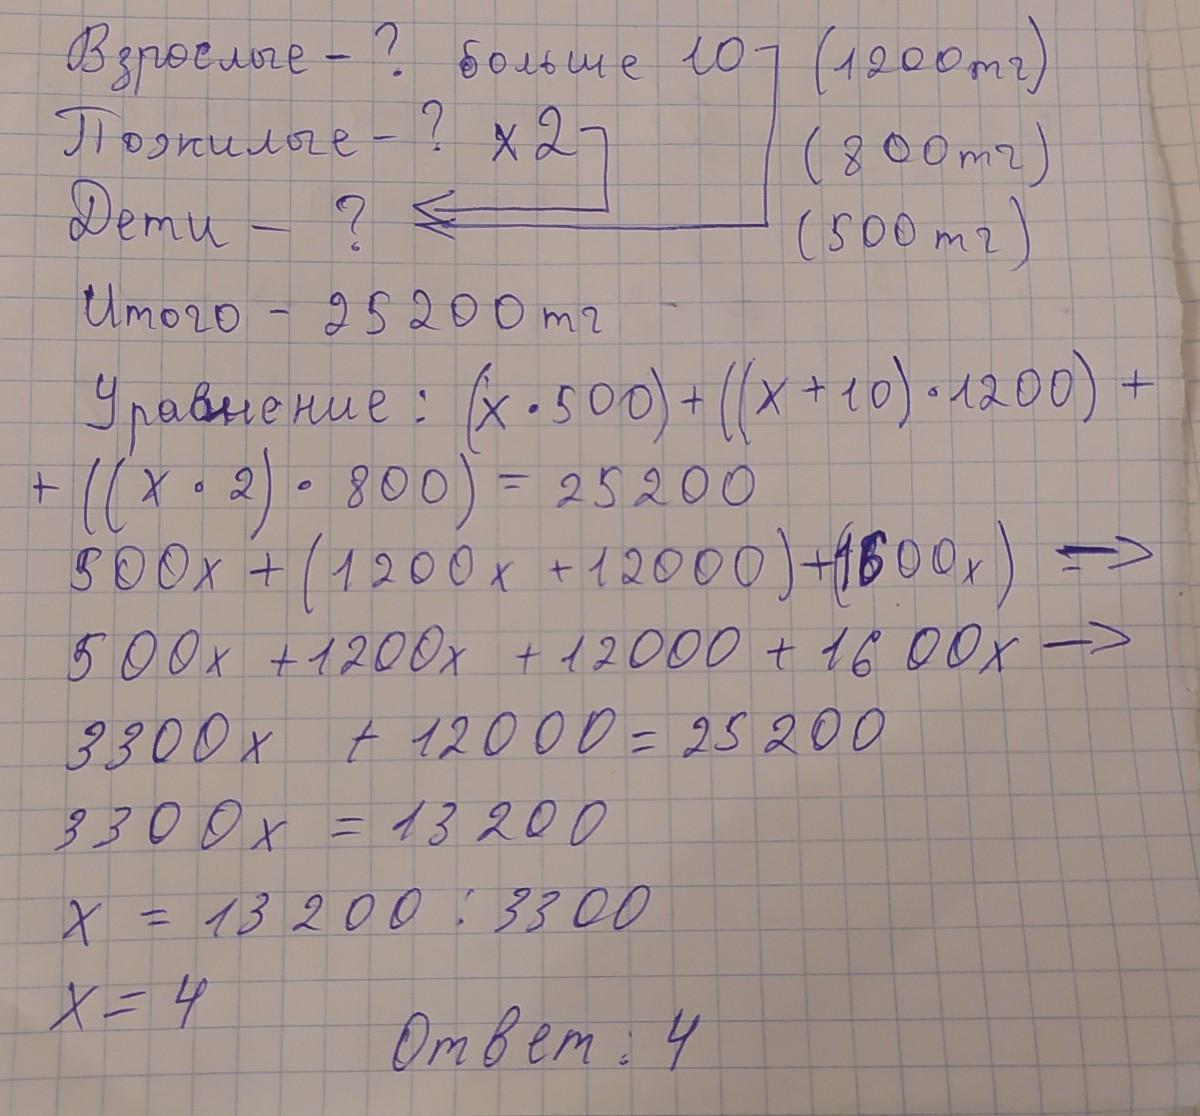 Взрослые - ? больше 10 (1200тг)
Пожилые - ? х2 (800тг)
Дети - ? (500тг)
Итого - 25200тг
Уравнение: (х · 500) + ((х + 10) · 1200) +
+ ((х · 2) · 800) = 25200
500х + (1200х + 12000) + (1600х) =>
500х + 1200х + 12000 + 1600х ->
3300х + 12000 = 25200
3300х = 13200
х = 13200 : 3300
х = 4
Ответ: 4